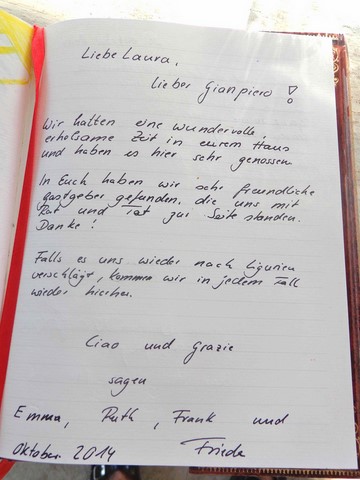 Liebe Laura,
lieber Gianpiero!
Wir hatten eine wundervolle,
erholsame Zeit in eurem Haus
und haben es hier sehr genossen
In Euch haben wir sehr freundliche
gastgeber gefunden, die uns mit
Rat und Tat zur Seite standen.
Danke!
Falls es uns wieder nach Ligurien
verschlägt, kommen wir in jedem Fall
wieder hierher.
Ciao und grazie
sagen
Emma, Ruth, Frank und
Oktober 2014 Frieda